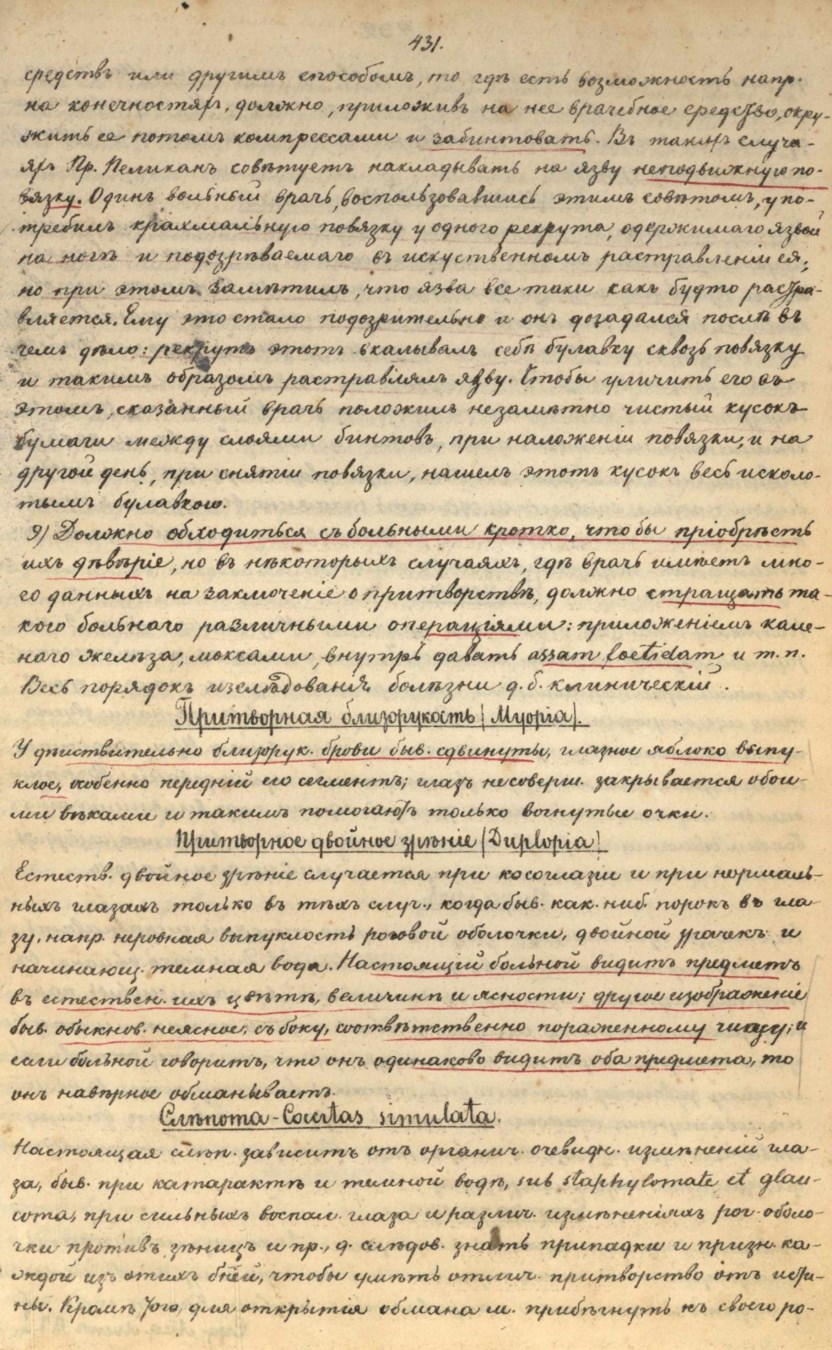 431.
средствъ или другимъ способомъ, то гдѣ есть возможность напр.
на конечностяхъ, должно, приложивъ на нее врачебное средство, окру-
жить ее потомъ компрессами и забинтовать. Въ такихъ случа-
яхъ Пр. Пеликанъ совѣтуетъ накладывать на язву неподвижную по-
вязку. Одинъ вольный врачъ, воспользовавшись этимъ совѣтомъ, упо-
требилъ крахмальную повязку у одного рекрута, одержимаго язвой
на ногѣ и подозрѣваемаго въ искуственномъ растравленіи ея;
но при этомъ замѣтилъ, что язва все таки какъ будто растра-
вляется. Ему это стало подозрительно и онъ догадался послѣ въ
чемъ дѣло: рекрутъ этотъ вкалывалъ себѣ булавку сквозь повязку
и такимъ образомъ растравлялъ язву. Чтобы уличить его въ
этомъ, сказанный врачъ положилъ незамѣтно чистый кусокъ
бумаги между слоями бинтовъ, при наложеніи повязки, и на
другой день, при снятіи повязки, нашелъ этотъ кусокъ весь исколо-
тымъ булавкою.
9) Должно обходиться съ больными кротко, чтобы пріобрѣсть
ихъ довѣріе, но въ нѣкоторыхъ случаяхъ, гдѣ врачъ имѣетъ мно-
го данныхъ на заключеніе о притворствѣ, должно стращать та-
кого больнаго различными операціями: приложеніемъ кале-
наго желѣза, моксами, внутрь давать assam foetidam и т. п.
Весь порядокъ изслѣдованія болѣзни д. б. клиническій.
Притворная близорукость (Myopia).
У дѣйствительно близорук. брови быв. сдвинуты, глазное яблоко выпу-
клое, особенно передній его сегментъ; глазъ несоверш. закрывается обои-
ми вѣками и такимъ помогаютъ только вогнутые очки.
Притворное двойное зрѣніе (Duplopia)
Естеств. двойное зрѣніе случается при косоглазіи и при нормаль-
ныхъ глазахъ только въ тѣхъ случ., когда быв. как. ниб. порокъ въ гла-
зу, напр. неровная выпуклость роговой оболочки, двойной зрачекъ и
начинающ. темная вода. Настоящій больной видитъ предметъ
въ естествен. ихъ цвѣтѣ, величинѣ и ясности; другое изображеніе
быв. обыкнов. неясное, съ боку, соотвѣтственно пораженному глазу; и
если больной говоритъ, что онъ одинаково видитъ оба предмета, то
онъ навѣрное обманываетъ.
Слѣпота - Coecitas simulata.
Настоящая слѣп. зависитъ отъ органич. очевидн. измѣненій гла-
за, быв. при катарактѣ и темной водѣ, sub staphylomate et glau-
coma, при сильныхъ воспал. глаза и различ. измѣненіяхъ рог. оболо-
чки противъ зѣницъ и пр., д. слѣдов. знать припадки и призн. ка-
ждой изъ этихъ бней, чтобы умѣть отлич. притворство отъ исти-
ны. Кромѣ того, для открытія обмана м. прибѣгнуть къ своего ро-